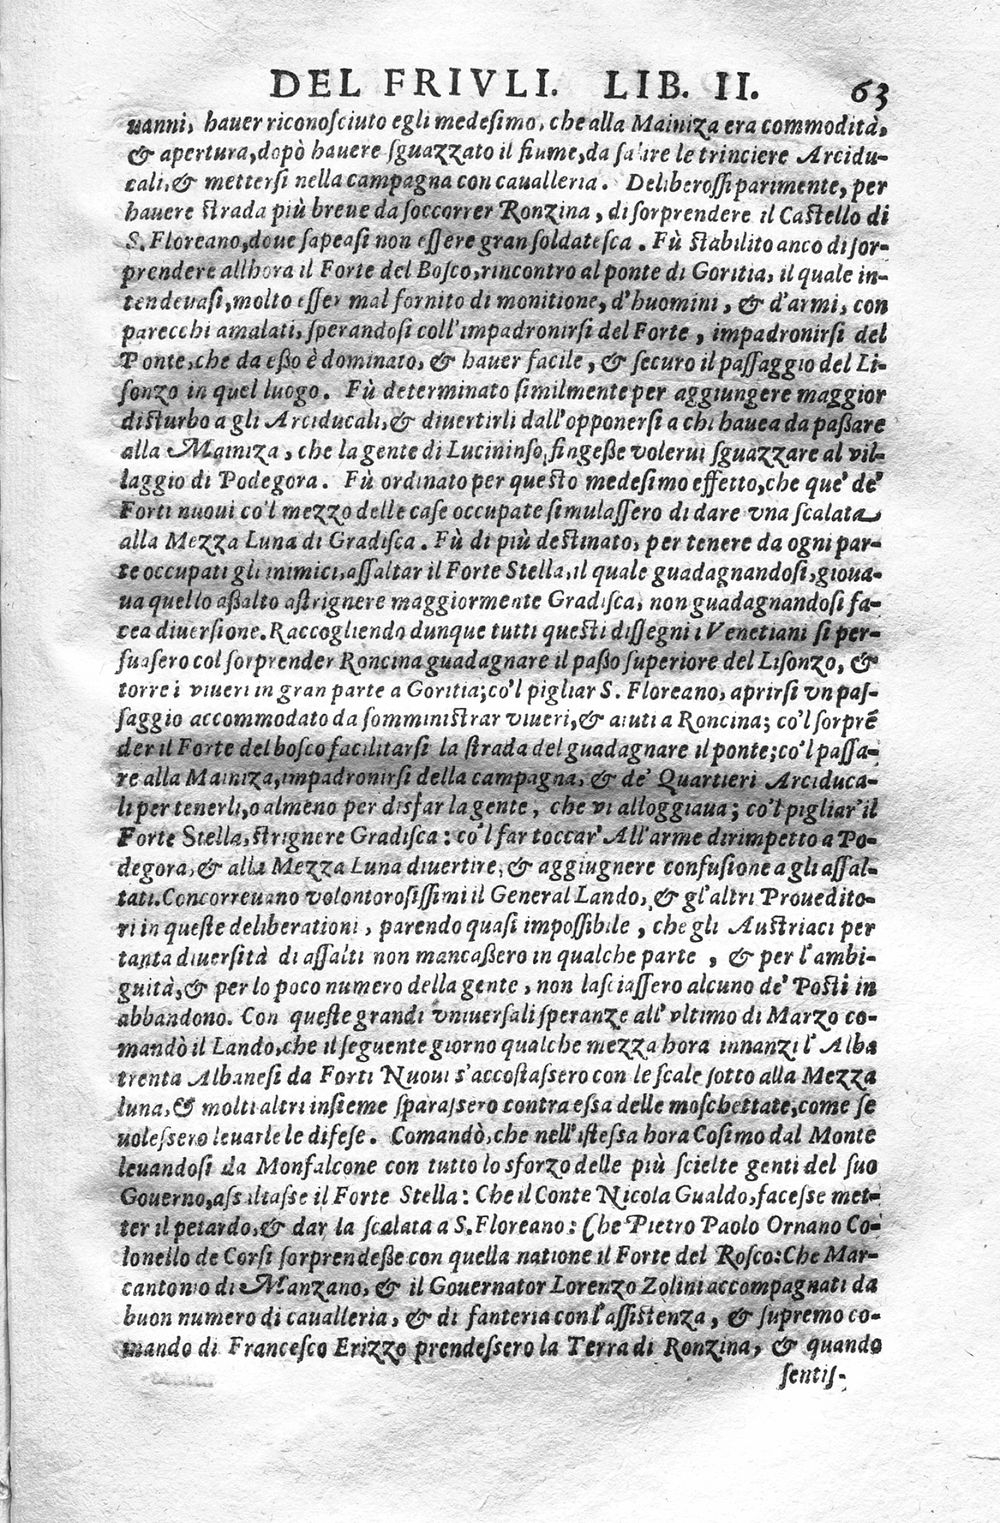 DEL FRIVLI. LIB. II. 63
uanni, hauer riconosciuto egli medesimo, che alla Mainiza era commodità,
& apertura, dopò hauere sguazzato il fiume, da salire le trinciere Arcidu-
cali, & mettersi nella campagna con caualleria. Deliberossi parimente, per
hauere strada più breue da soccorrer Ronzina, di sorprendere il Castello di
S. Floreano, doue sapeasi non essere gran soldatesca. Fù stabilito anco di sor-
prendere allhora il Forte del Bosco, rincontro al ponte di Goritia, il quale in-
tendeuasi, molto esser mal fornito di monitione, d'huomini, & d'armi, con
parecchi amalati, sperandosi coll'impadronirsi del Forte, impadronirsi del
Ponte, che da esso è dominato, & hauer facile, & securo il passaggio del Li-
sonzo in quel luogo. Fù determinato similmente per aggiungere maggior
disturbo a gli Arciducali, & diuertirli dall'opponersi a chi hauea da passare
alla Mainiza, che la gente di Lucininso, fingesse volerui sguazzare al vil-
laggio di Podegora. Fù ordinato per questo medesimo effetto, che que' de'
Forti nuoui co'l mezzo delle case occupate simulassero di dare vna scalata
alla Mezza Luna di Gradisca. Fù di più destinato, per tenere da ogni par-
te occupati gli inimici, assaltar il Forte Stella, il quale guadagnandosi, gioua-
ua quello assalto astrignere maggiormente Gradisca, non guadagnandosi fa-
cea diuersione. Raccogliendo dunque tutti questi dissegni i Venetiani si per-
suasero col sorprender Roncina guadagnare il passo superiore del Lisonzo, &
torre i viueri in gran parte a Goritia; co'l pigliar S. Floreano, aprirsi vn pas-
saggio accommodato da somministrar viueri, & aiuti a Roncina; co'l sorprẽ
der il Forte del bosco facilitarsi la strada del guadagnare il ponte; co'l passa-
re alla Mainiza, impadronirsi della campagna, & de' Quartieri Arciduca-
li per tenerli, o almeno per disfar la gente, che vi alloggiaua; co'l pigliar'il
Forte Stella, strignere Gradisca: co'l far toccar' All'arme dirimpetto a Po-
degora, & alla Mezza Luna diuertire, & aggiugnere confusione a gli assal-
tati. Concorreuano volontorosissimi il General Lando, & gl'altri Proueditо-
ri in queste deliberationi, parendo quasi impossibile, che gli Austriaci per
tanta diuersità di assalti non mancassero in qualche parte, & per l'ambi-
guità, & per lo poco numero della gente, non lasciassero alcuno de' Posti in
abbandono. Con queste grandi vniuersali speranze all'vltimo di Marzo co-
mandò il Lando, che il seguente giorno qualche mezza hora innanzi l'Alba
trenta Albanesi da Forti Nuoui s'accostassero con le scale sotto alla Mezza
luna, & molti altri insieme sparassero contra essa delle moschettate, come se
volessero leuarle le difese. Comandò, che nell'istessa hora Cosimo dal Monte
leuandosi da Monfalcone con tutto lo sforzo delle più scielte genti del suo
Gouerno, assaltasse il Forte Stella: Che il Conte Nicola Gualdo, facesse met-
ter il petardo, & dar la scalata a S. Floreano: Che Pietro Paolo Ornano Co-
lonello de Corsi sorprendesse con quella natione il Forte del Rosco: Che Mar-
cantonio di Manzano, & il Gouernator Lorenzo Zolini accompagnati da
buon numero di caualleria, & di fanteria con l'assistenza, & supremo co-
mando di Francesco Erizzo prendessero la Terra di Ronzina, & quando
sentis-